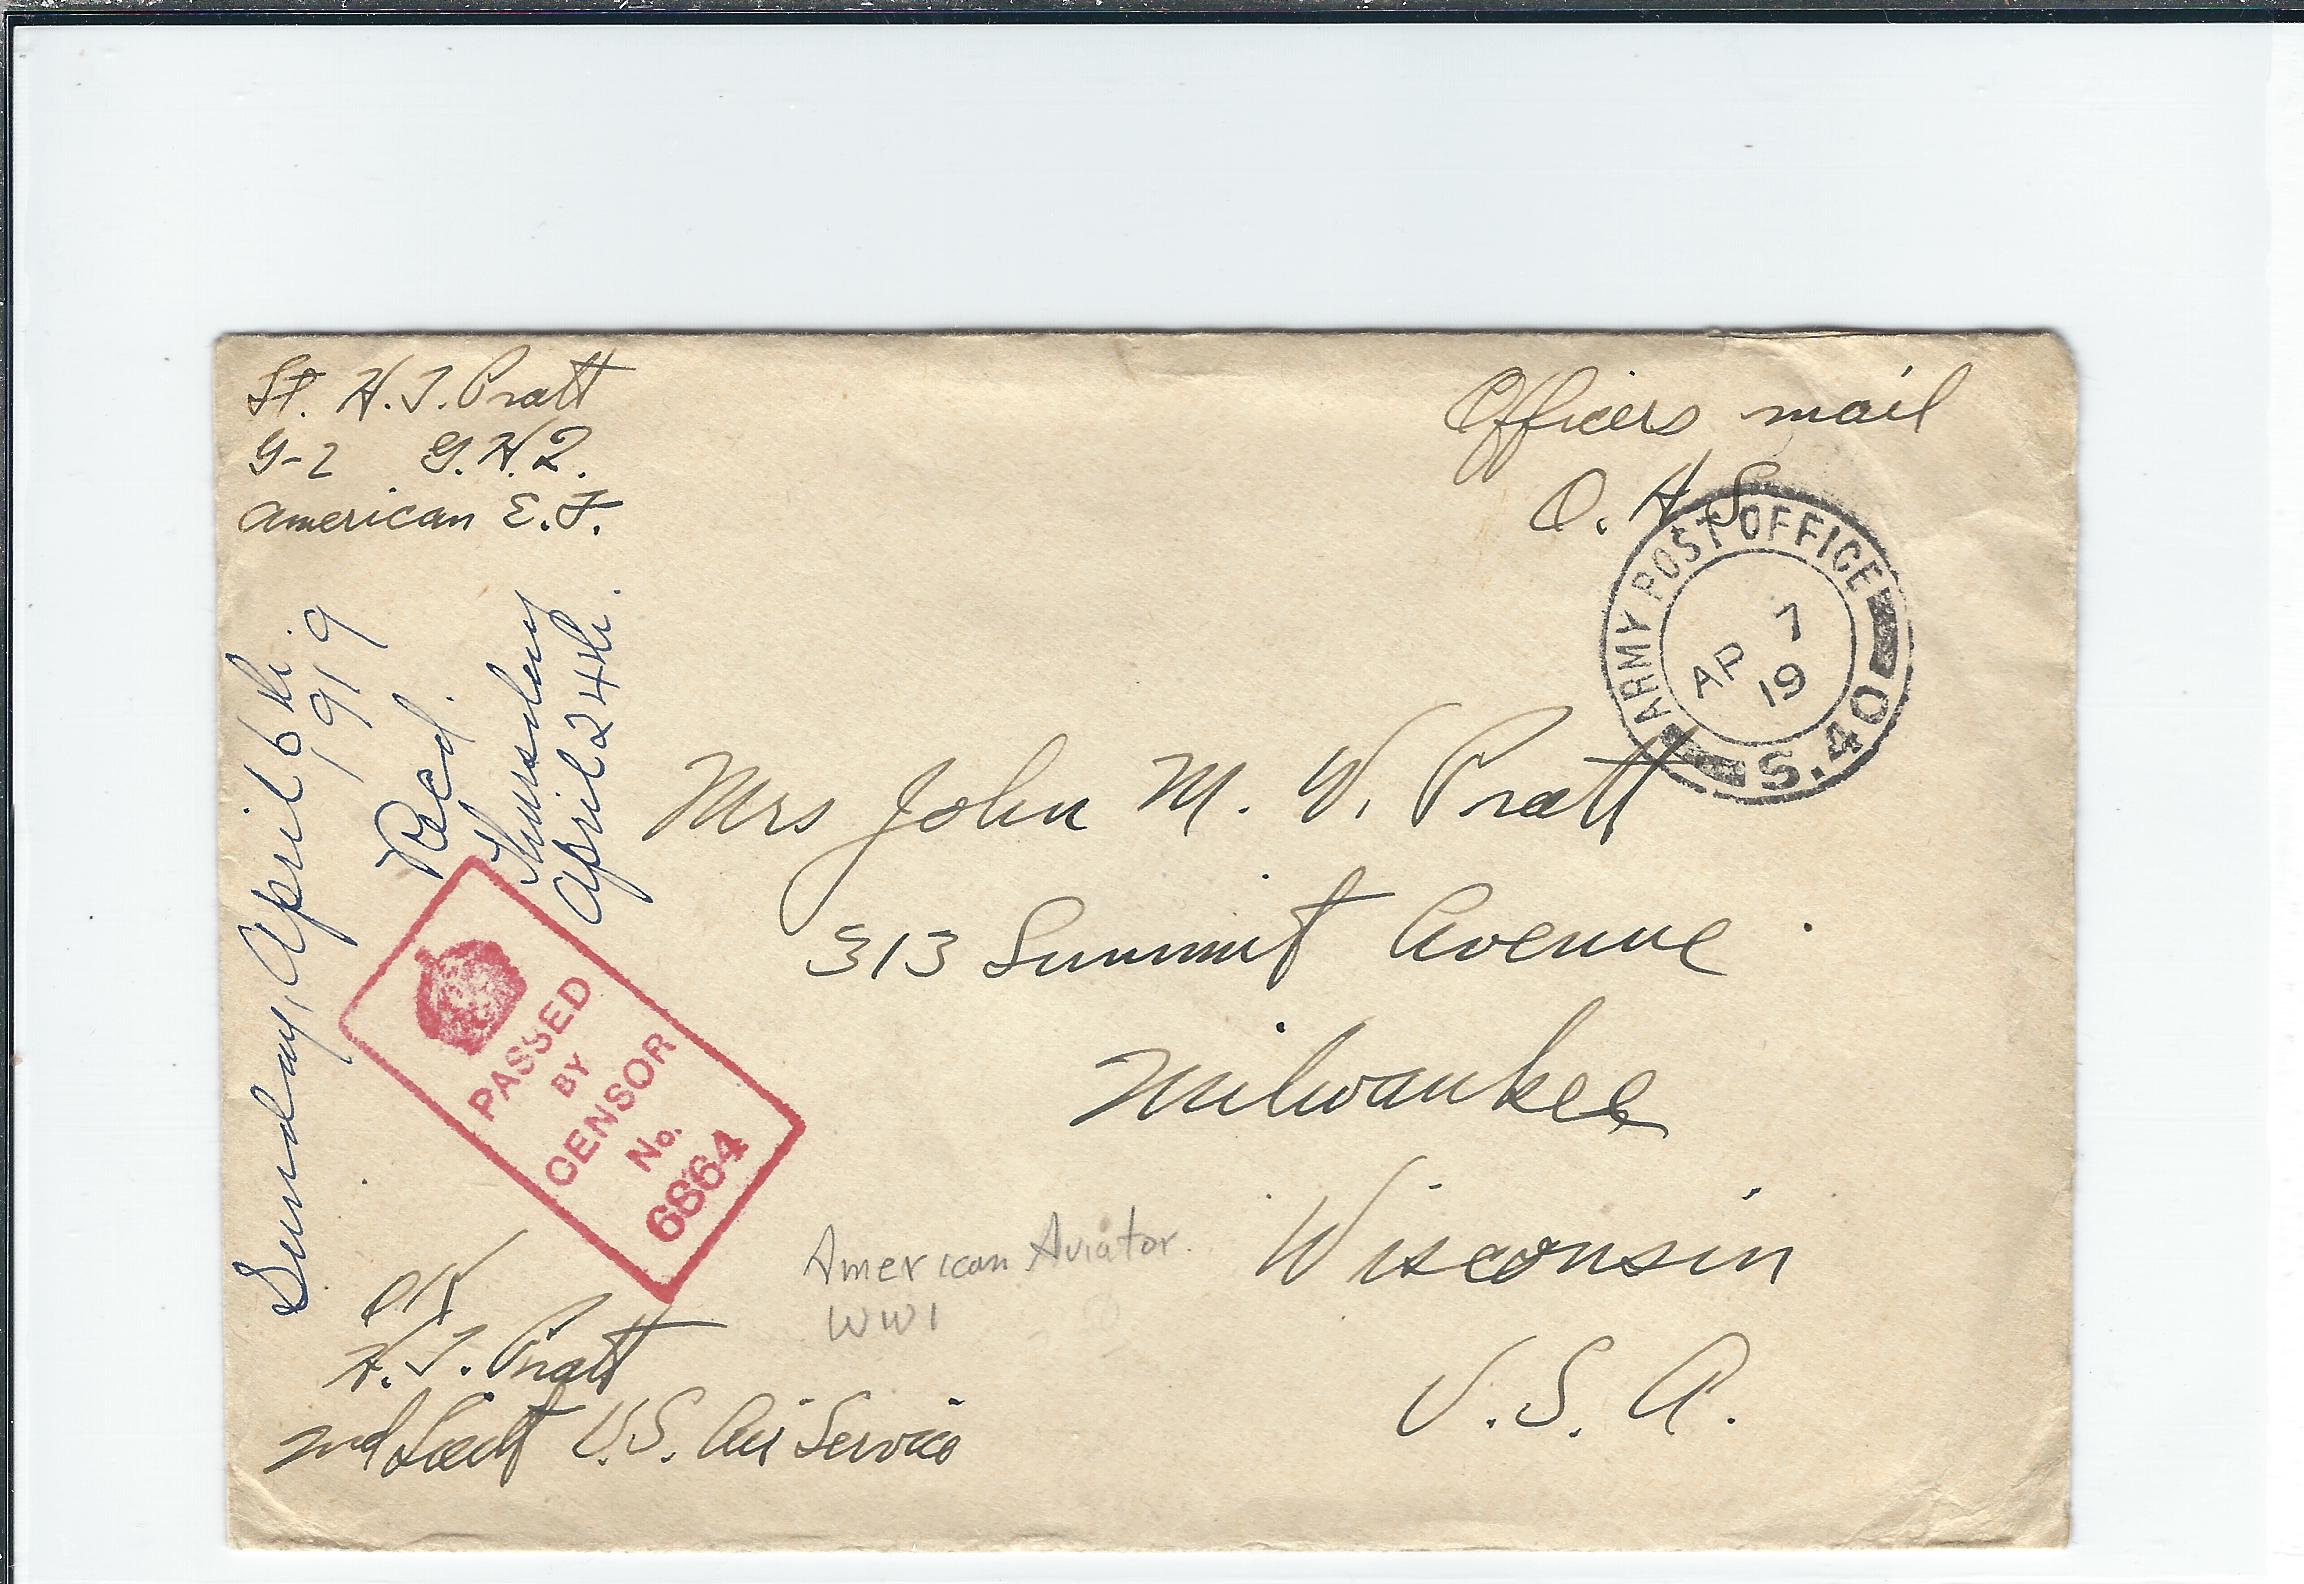 Lt. H. T. Pratt
G-2 G.H.Q.
American E. F.
Officers mail
O. A. S.
ARMY POST OFFICE
7
AP 19
S.40
Sunday, April 6th
1919
Recd.
Thursday
April 24th.
Mrs John M. W. Pratt
313 Summit Avenue
Milwaukee
Wisconsin
U. S. A.
PASSED
BY
CENSOR
No.
6864
American Aviator.
WW1
OK
H. T. Pratt
2nd Lieut U.S. Air Service